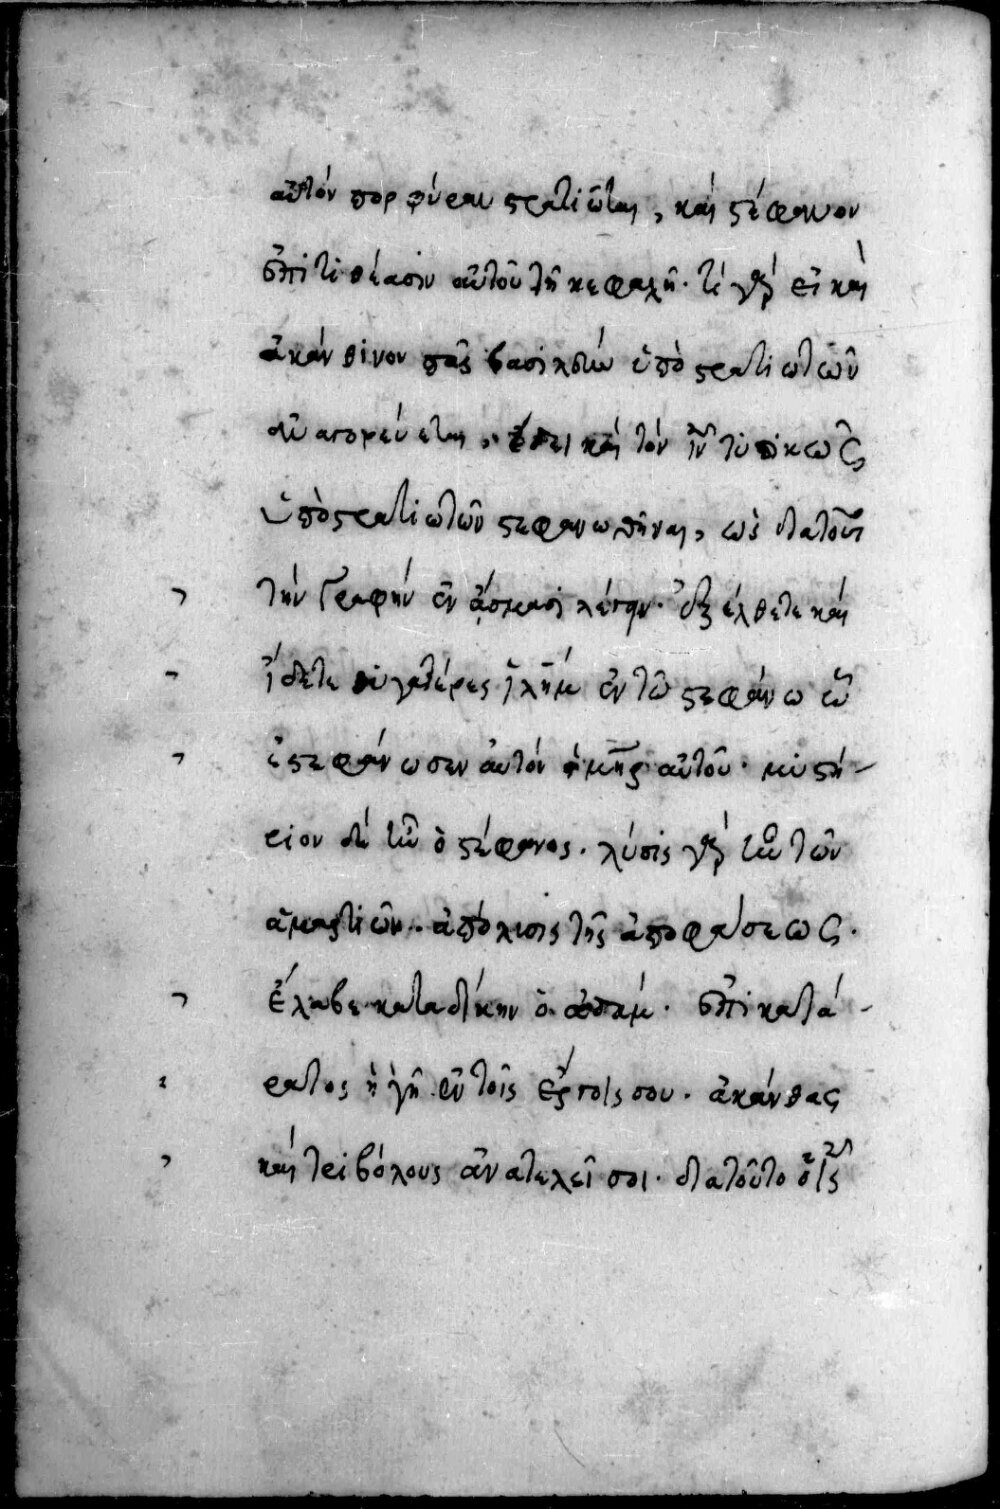 αὐτὸν πορφύραν στρατιῶται, καὶ στέφανον
ἐπιτιθέασιν αὐτοῦ τῇ κεφαλῇ· τί γὰρ εἰ καὶ
ἀκάνθινον πᾶς βασιλεὺς ὑπὸ στρατιωτῶν
ἀναγορεύεται, ἔδει καὶ τὸν ιν τυπικῶς
ὑπὸ στρατιωτῶν στεφανωθῆναι, ὡς διατοῦτο
τὴν Γραφὴν ἐν ᾄσμασι λέγειν· ἐξέλθετε καὶ
ἴδετε θυγατέρες ιλημ ἐν τῷ στεφάνω ὧ
ἐστεφάνωσεν αὐτὸν ἡ μηρ αὐτοῦ· μυστή-
ριον δὲ ἦν ὁ στέφανος· λύσις γὰρ ἦν τῶν
ἁμαρτιῶν· ἀπόλυσις τῆς ἀποφάσεως·
Ἔλαβε καταδίκην ὁ ἀδάμ· ἐπικατά-
ρατος ἡ γῆ ἐν τοῖς ἔργοις σου· ἀκάνθας
καὶ τριβόλους ἀνατελεῖ σοι· διατοῦτο ὁ ις